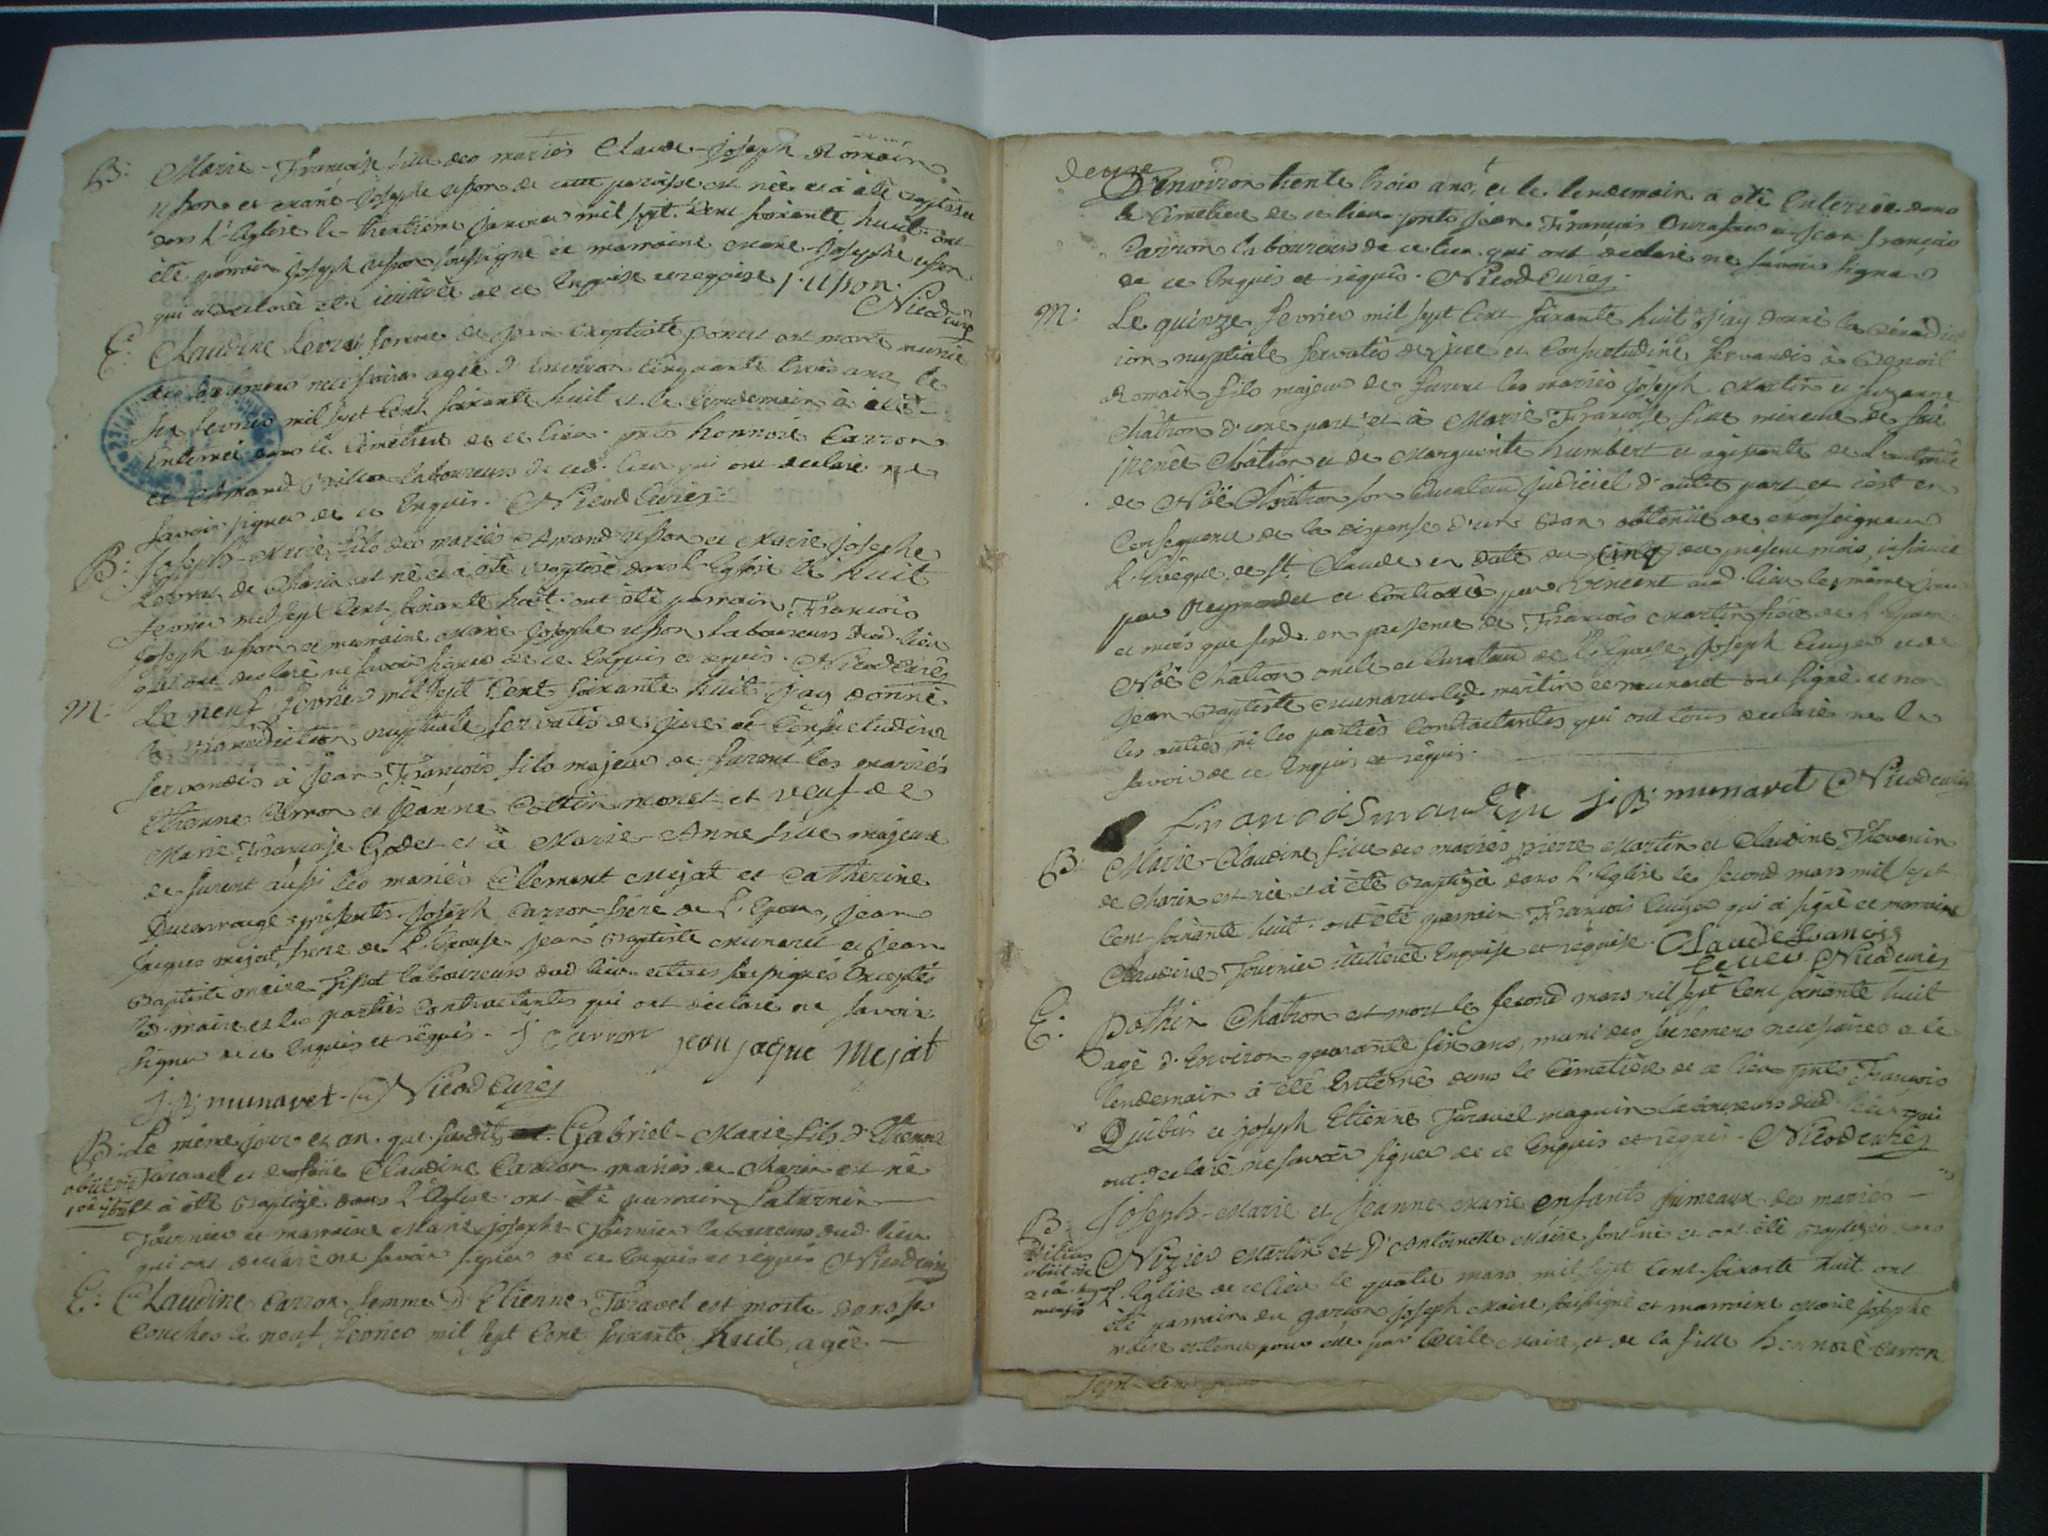 B: Marie-Françoise fille des mariés Claude-Joseph Romain
usson et marie-Josephe usson de cette paroisse est née et à été baptisée
dans l'Eglise le trentieme janvier mil sept cent soixante huit ont
été parrain Joseph usson soussigné et marraine marie-Josephe usson
qui à declaré être illitérée de ce Enquise et requise J. usson
Nicod curé
E: Claudine femme de jean baptiste poncet est morte munie
des sacremens necessaires agée d'environ cinquante trois ans le
six fevrier mil sept cent soixante huit et le lendemain à été
Enterrée dans le Cimetiere de ce lieu. pnts honnoré Carron
et laboureurs de ced. lieu qui ont declaré ne
savoir signer de ce Enquis. Nicod Curé
B: Joseph-marie fils des mariés Amand usson et marie josephe
de Charix est né et à été baptisé dans l'Eglise le huit
fevrier mil sept cent soixante huit. ont été parrain François
Joseph usson et marraine Marie-Josephe usson laboureurs dud. lieu
qui ont declaré ne savoir signer de ce Enquis et requis. Nicod curé
M: Le neuf fevrier mil sept cent soixante huit j'ay donné
la Bénédiction nuptiale servatis de jure et Consuetudine
servandis à Jean-François fils majeur de furent les mariés
Etienne Carron et Jeanne Cottin monet et veuf de
Marie Françoise Godet et à Marie-Anne fille majeure
de furent aussi les mariés Clement mejat et Catherine
Ducarrouge. présents Joseph Carron frere de l'Epoux, jean
jacques mejat frere de l'Epouse jean Baptiste munaret et jean
Baptiste maire Tissot laboureurs dud lieu. et tous soussignés Exceptés
led. maire et les parties Contractantes qui ont declaré ne savoir
signer de ce Enquis et requis. J Carron jean jaque Mejat
J: B: munaret. Nicod Curé
B: Le même jour et an que susdit Gabriel-Marie fils d'Etienne
obiit Juravel et de Claudine Carron mariés de Charix est né
et à été Baptizé dans l'Eglise ont été parrain Saturnin
Tournier et marraine Marie josephe Tournier laboureurs dud. lieu
qui ont declaré ne savoir signer de ce Enquis et requis Nicod curé
E: Claudine Carron femme d'Etienne Juravel est morte dans ses
couches le neuf fevrier mil sept cent soixante huit agée
D'environ trente trois ans, et le lendemain à été Enterrée dans
le Cimetiere de ce lieu pnts jean François et jean françois
Carron laboureurs de ce lieu. qui ont declaré ne savoir signer
de ce Enquis et requis. Nicod Curé.
M: Le quinze fevrier mil sept cent soixante huit j'ay donné la Bénédict
ion nuptiale servatis de jure et Consuetudine servandis à Benoit
Romain fils majeur de furent les mariés Joseph Martin et Suzanne
Chatron d'une part et à Marie Françoise fille mineure de feu
jrenée Chatron et de Marguerite humbert et agissante de l'autorité
de Noë Chatron son Curateur judiciel d'autre part et c'est en
Consequence de la dispense d'un Ban obtenüe de Monseigneur
l'Evêque de St. Claude en date du cinq du présent mois, insinuée
par Reymondet et Contrôlée par vincent aud. lieu les même jour
et mois que susd. en presence de François Martin frere de l'Epoux
Noë Chatron oncle et Curateur de l'Epouse, Joseph et de
jean Baptiste munaret. led. martin et munaret ont signé et non
les autres ni les parties Contractantes qui ont tous declaré ne le
savoir de ce Enquis et requis.
francois martin J: B: munaret Nicod curé
B: Marie-Claudine fille des mariés pierre Martin et Claudine Thevenin
de Charix est née et à été Baptizée dans l'Eglise le second mars mil sept
cent soixante huit. ont été parrain François qui à signé et marraine
Claudine Tournier illitérée Enquise et requise. Claude francois
Nicod curé
E: pothin Chatron est mort le second mars mil sept cent soixante huit
agé d'Environ quarante six ans, muni des sacremens necessaires et le
lendemain à été Enterré dans le Cimetière de ce lieu pnts François
Quibus et joseph Etienne Juravel maguin laboureurs dud. lieu qui
ont declaré ne savoir signer de ce Enquis et requis. Nicod curé
B: Joseph-Marie et Jeanne-Marie enfants jumeaux des mariés
Nizier Martin et d'Antoinette Maire sont né et ont été Baptizés dans
l'Eglise de ce lieu le quatre mars mil sept cent soixante huit ont
été parrain du garçon joseph Maire soussigné et marraine Marie josephe
maire et tenu pour elle par Cecile Maire, et de la fille honnoré carron